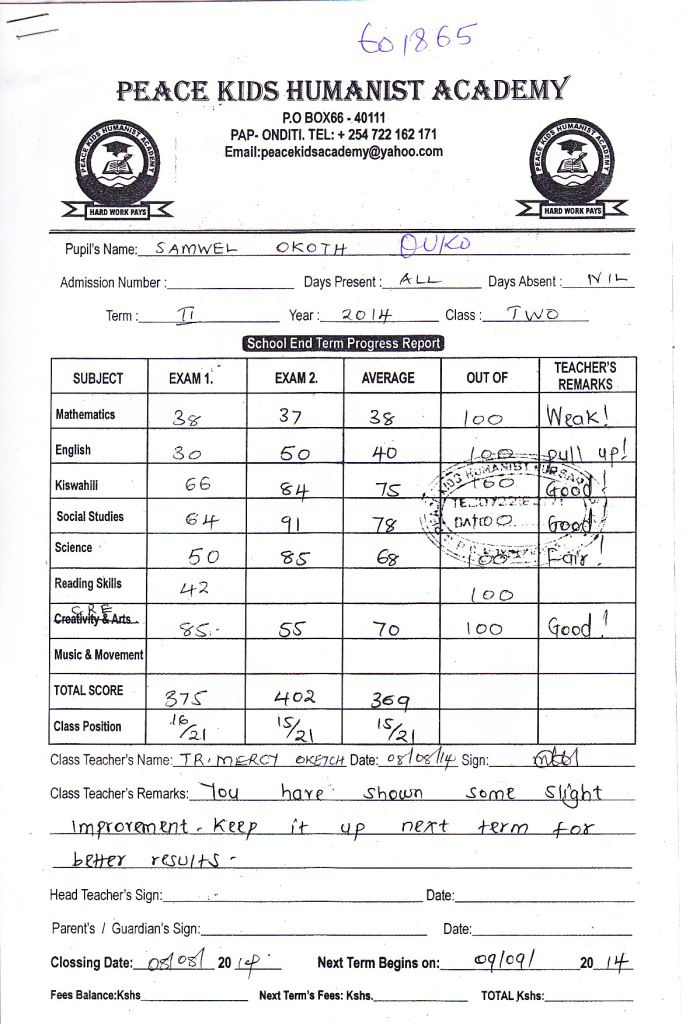 601865
PEACE KIDS HUMANIST ACADEMY
P.O BOX66 - 40111
PAP- ONDITI. TEL: + 254 722 162 171
Email:peacekidsacademy@yahoo.com
PEACE KIDS HUMANIST ACADEMY
HARD WORK PAYS
PEACE KIDS HUMANIST ACADEMY
HARD WORK PAYS
Pupil's Name: SAMWEL OKOTH OUKO
Admission Number : Days Present : ALL Days Absent : NIL
Term : II Year : 2014 Class : TWO
School End Term Progress Report
SUBJECT EXAM 1. EXAM 2. AVERAGE OUT OF TEACHER'S REMARKS
Mathematics 38 37 38 100 Weak!
English 30 50 40 100 pull up!
Kiswahili 66 84 75 100 Good!
Social Studies 64 91 78 100 Good!
Science 50 85 68 100 Fair!
Reading Skills 42 100
CRE
Creativity & Arts 85 55 70 100 Good!
Music & Movement
TOTAL SCORE 375 402 369
Class Position 16/21 15/21 15/21
Class Teacher's Name: TR. MERCY OKETCH Date: 08/08/14 Sign:
Class Teacher's Remarks: You have shown some slight
improvement. Keep it up next term for
better results.
Head Teacher's Sign: Date:
Parent's / Guardian's Sign: Date:
Clossing Date: 08/08/ 20 14 Next Term Begins on: 09/09/ 20 14
Fees Balance:Kshs Next Term's Fees: Kshs. TOTAL Kshs: